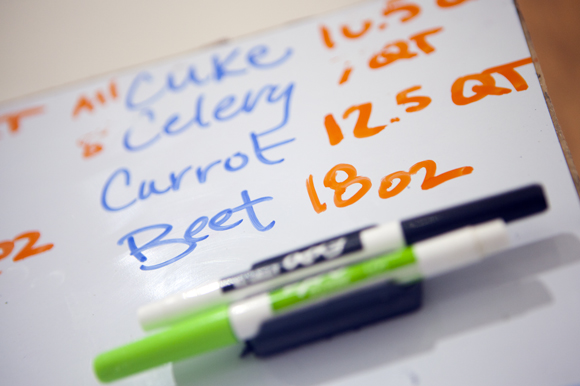 All Cuke 10.5
& Celery QT
Carrot 12.5 QT
Beet 18oz
oz